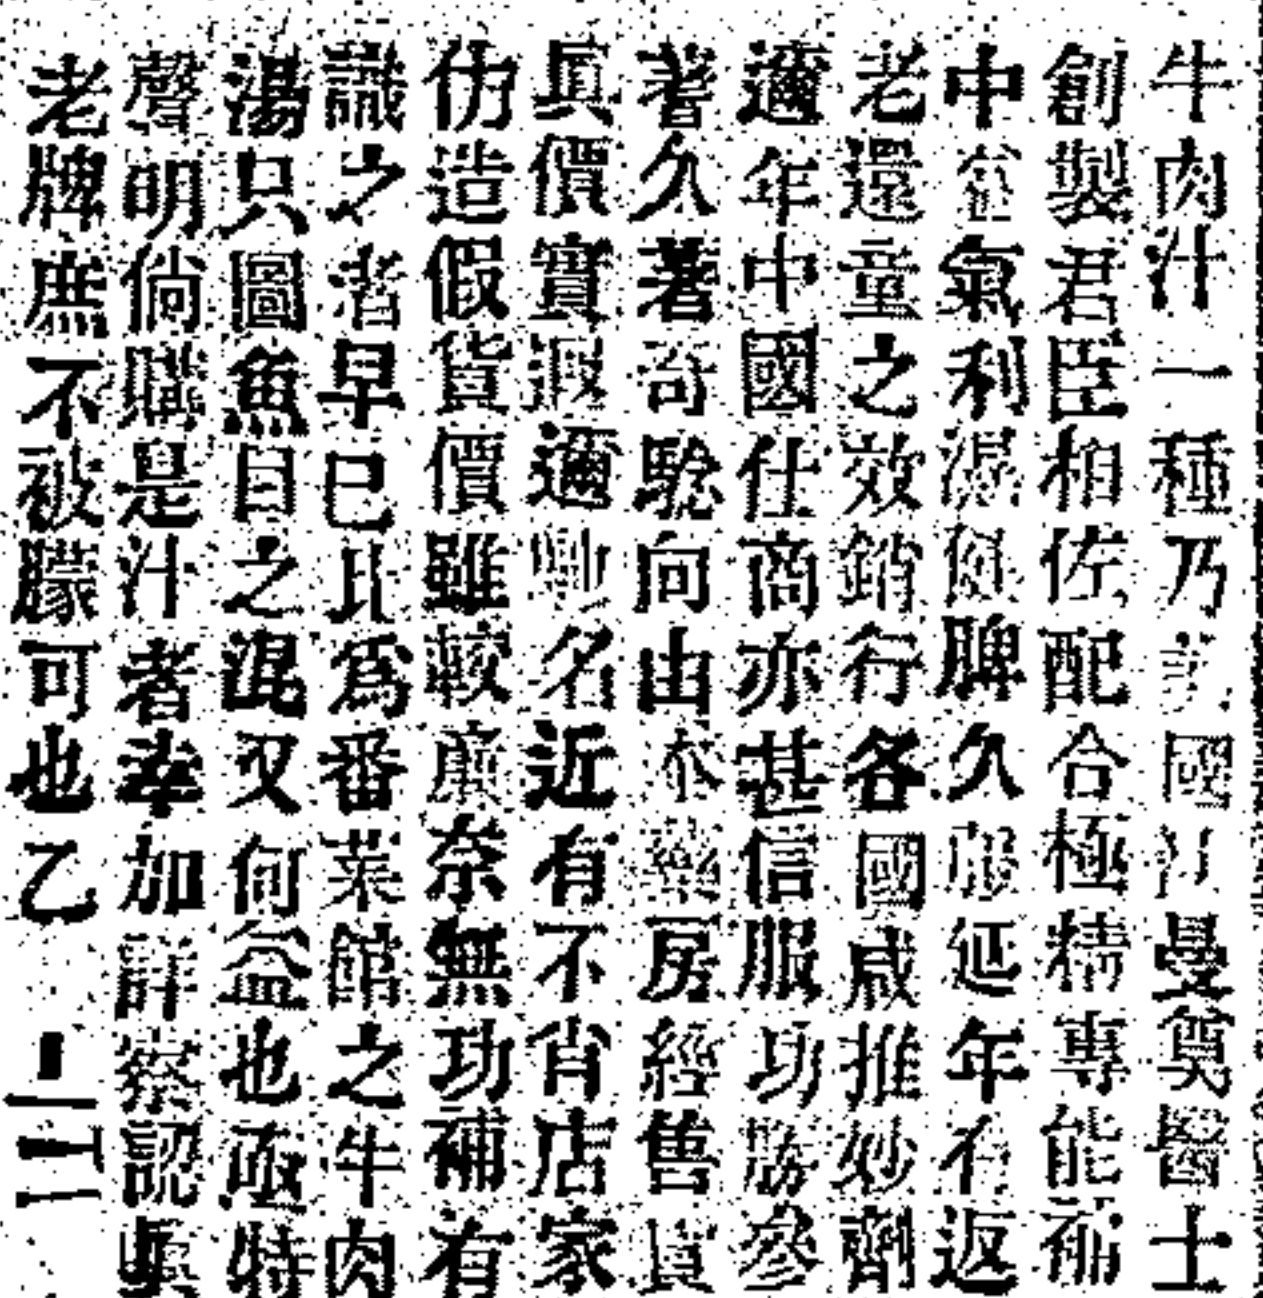 牛肉汁一種乃國曼奠醫士
創製君臣相佐配合極精專能補
中氣利濕健脾久服延年有返
老還童之效銷行各國咸推妙劑
邇年中國仕商亦甚信服功勝參
蓍久著奇驗向由本藥房經售貨
眞價實遐邇馳名近有不肖店家
仿造假貨價雖較廉奈無功補有
識之者早已比爲番菜館之牛肉
湯只圖魚目之混又何益也亟特
聲明倘購是汁者幸加詳察認眞
老牌庶不被矇可也乙